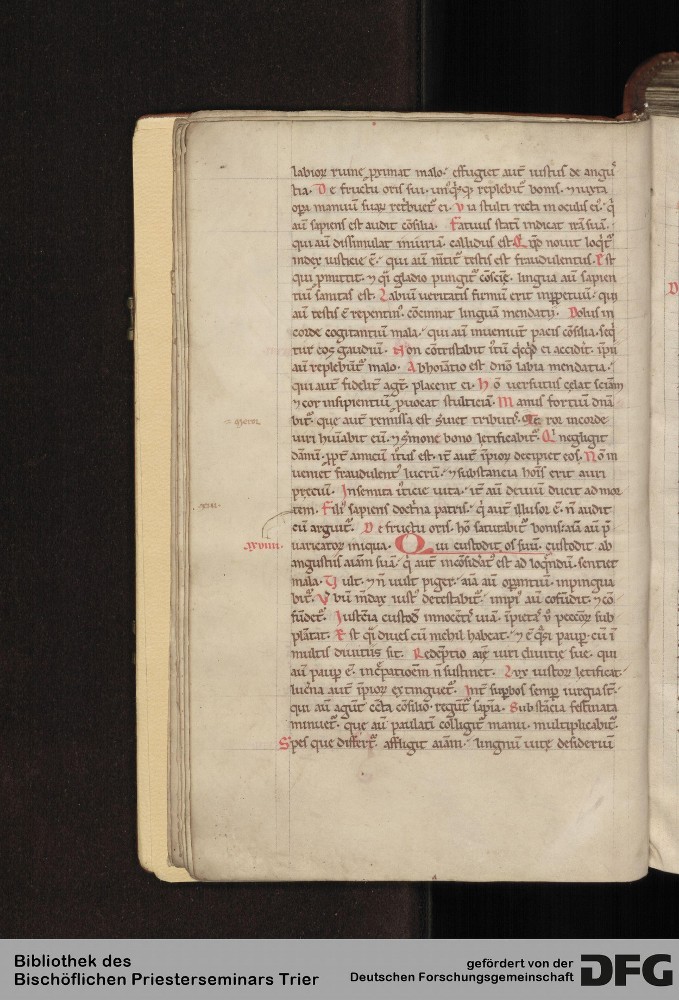 labior ruine ꝓximat malo. effugiet aut̄ iustus de angu
tia. De fructu oris sui. unusq̇sq; replebit᷑ bonis. ⁊ iuxta
oꝑa manuum suaꝝ retͥbuet᷑ ei. Via stulti recta in oculis ei᷒. q̇
aūt sapiens est audit cōsilia. Fatuus statī indicat irā suā.
qui aūt dissimulat iniuriā. callidus est. Qͥ qd̓ nouit loqͥt᷑
index iusticie ē. qui aūt mītit᷑ testis est fraudulentus. Est
qui ꝓmittit. ⁊ qͣsi gladio pungit᷑ cōsciē. lingua aūt sapien
tiū sanitas est. Labiū ueritatis firmum erit inꝑpetuū. qui
aūt testis ē repentin᷒. cōcinnat linguā mendacij. Dolus in
corde cogitantium mala. qui aūt ineunt pacis cōsilia. seqͥ
tur eos gaudiū. Non cōtristabit iustū qͥcqͥd ei acciderit. ip̄ii
aūt replebūt᷑ malo. Abhoīatio est dn̄o labia mendatia.
qui aut̄ fidelit᷑ agūt. placent ei. Hō uersutus celat sciam
⁊ cor insipientiū ꝓuocat stulticiā. Manus fortium dn̄a
bit᷑. que aut̄ remissa est seruiet tributis. Meror in corde
uiri humiliabit eū. ⁊ sermone bono letificabit᷑. Qͥ negligit
damnū. ꝓpt᷑ amicum iustus est. iter aut̄ ip̄ior decipiet eos. Non in
ueniet fraudulent᷒ lucrū. ⁊ substancia hoīs erit auri
precium. In semita iusticie uita. iter aūt deuiū ducit ad mor
tem. Fili᷒ sapiens doctrina patris. qͥ aūt illusor ē. nō audit
cū arguit᷑. De fructu oris. hō saturabit᷑ bonis. aīa aūt p̄
xviiii. uaricator iniqua. Qui custodit os suū. custodit ab
angustiis aīam suā. qͥ aut̄ incōsiderat᷒ est ad loqͥndū. sentiet
mala. Uult ⁊ nō uult piger. aīa aūt oꝑantiū. inpingua
bit᷑. Verbum mendax iust᷒ detestabit᷑. impi᷒ aūt cōfundit. ⁊ cō
fūdet᷑. Justicia custodit innocentis uiā. impietas ū̓ peccatorē sub
plātat. Est qͣsi diues cum nichil habeat. ⁊ ē qͣsi pauꝑ cū ī
multis diuitiis sit. Redēptio aīe uiri diuitie sue. qui
aūt pauꝑ ē. increpationem nō sustinet. Lux iustoꝝ letificat.
lucerna aut̄ impioꝝ extinguet᷑. Inter suꝑbos semper iurgia sūt.
qui aūt agūt cūcta cōsilio. regūt᷑ sapiētia. Substācia festinata
minuet᷑. que aūt paulatī colligit᷑ manu. multiplicabit᷑.
Spes que differt᷑. affligit aīam. lingnū uite desideriū
Bibliothek des
Bischöflichen Priesterseminars Trier
gefördert von der
Deutschen Forschungsgemeinschaft
DFG